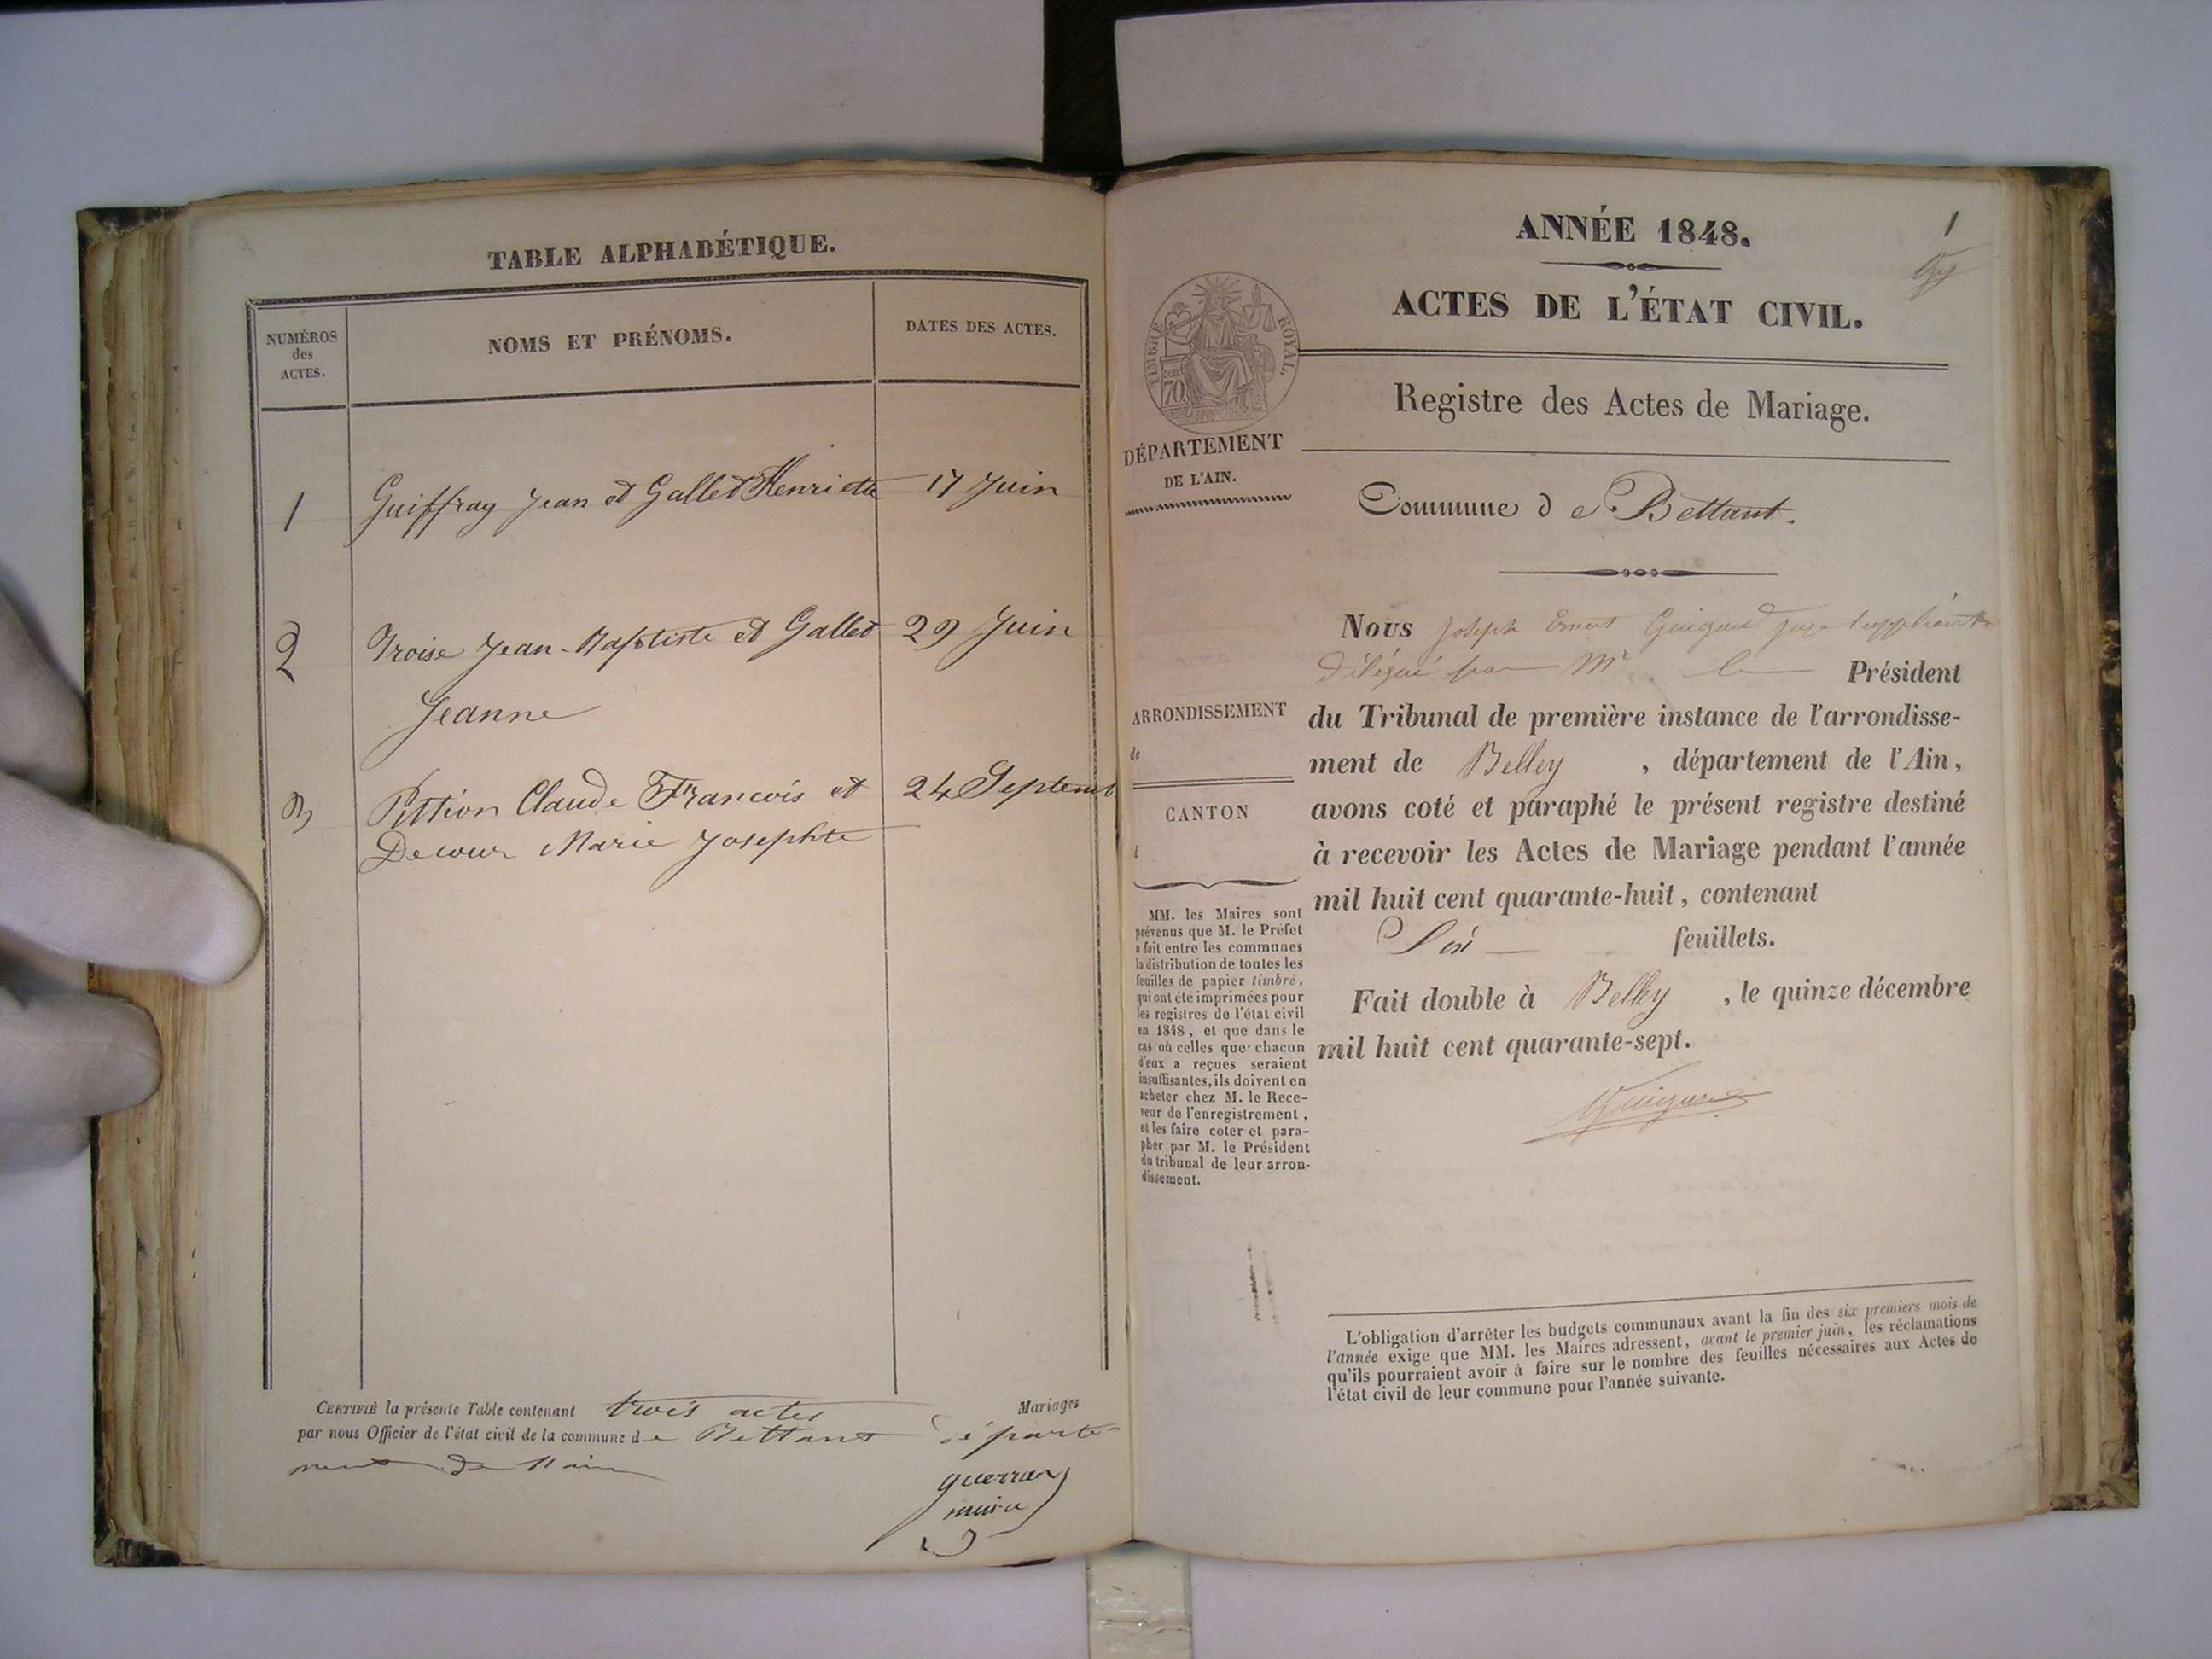 TABLE ALPHABÉTIQUE.
NUMÉROS
des
ACTES.
NOMS ET PRÉNOMS.
DATES DES ACTES.
1 Guiffray Jean et Gallet Henriette 17 Juin
2 Troise Jean-Baptiste et Gallet 29 Juin
Jeanne
3 Pittion Claude Francois et 24 Septemb
Decour Marie Josephte
CERTIFIÉ la présente Table contenant trois actes Mariages
par nous Officier de l'état civil de la commune de Bettant départe-
ment de l'ain
guerraz
maire
1
ANNÉE 1848.
ACTES DE L'ÉTAT CIVIL.
TIMBRE ROYAL.
cent 70
Registre des Actes de Mariage.
DÉPARTEMENT
DE L'AIN.
Commune de Bettant.
ARRONDISSEMENT
de
CANTON
MM. les Maires sont
prévenus que M. le Préfet
a fait entre les communes
la distribution de toutes les
feuilles de papier timbré,
qui ont été imprimées pour
les registres de l'état civil
en 1848, et que dans le
cas où celles que chacun
d'eux a reçues seraient
insuffisantes, ils doivent en
acheter chez M. le Rece-
veur de l'enregistrement,
et les faire coter et para-
pher par M. le Président
du tribunal de leur arron-
dissement.
Nous Joseph Ernest juge suppléant
délégué par Mr. le Président
du Tribunal de première instance de l'arrondisse-
ment de Belley, département de l'Ain,
avons coté et paraphé le présent registre destiné
à recevoir les Actes de Mariage pendant l'année
mil huit cent quarante-huit, contenant
feuillets.
Fait double à Belley, le quinze décembre
mil huit cent quarante-sept.
L'obligation d'arrêter les budgets communaux avant la fin des six premiers mois de
l'année exige que MM. les Maires adressent, avant le premier juin, les réclamations
qu'ils pourraient avoir à faire sur le nombre des feuilles nécessaires aux Actes de
l'état civil de leur commune pour l'année suivante.